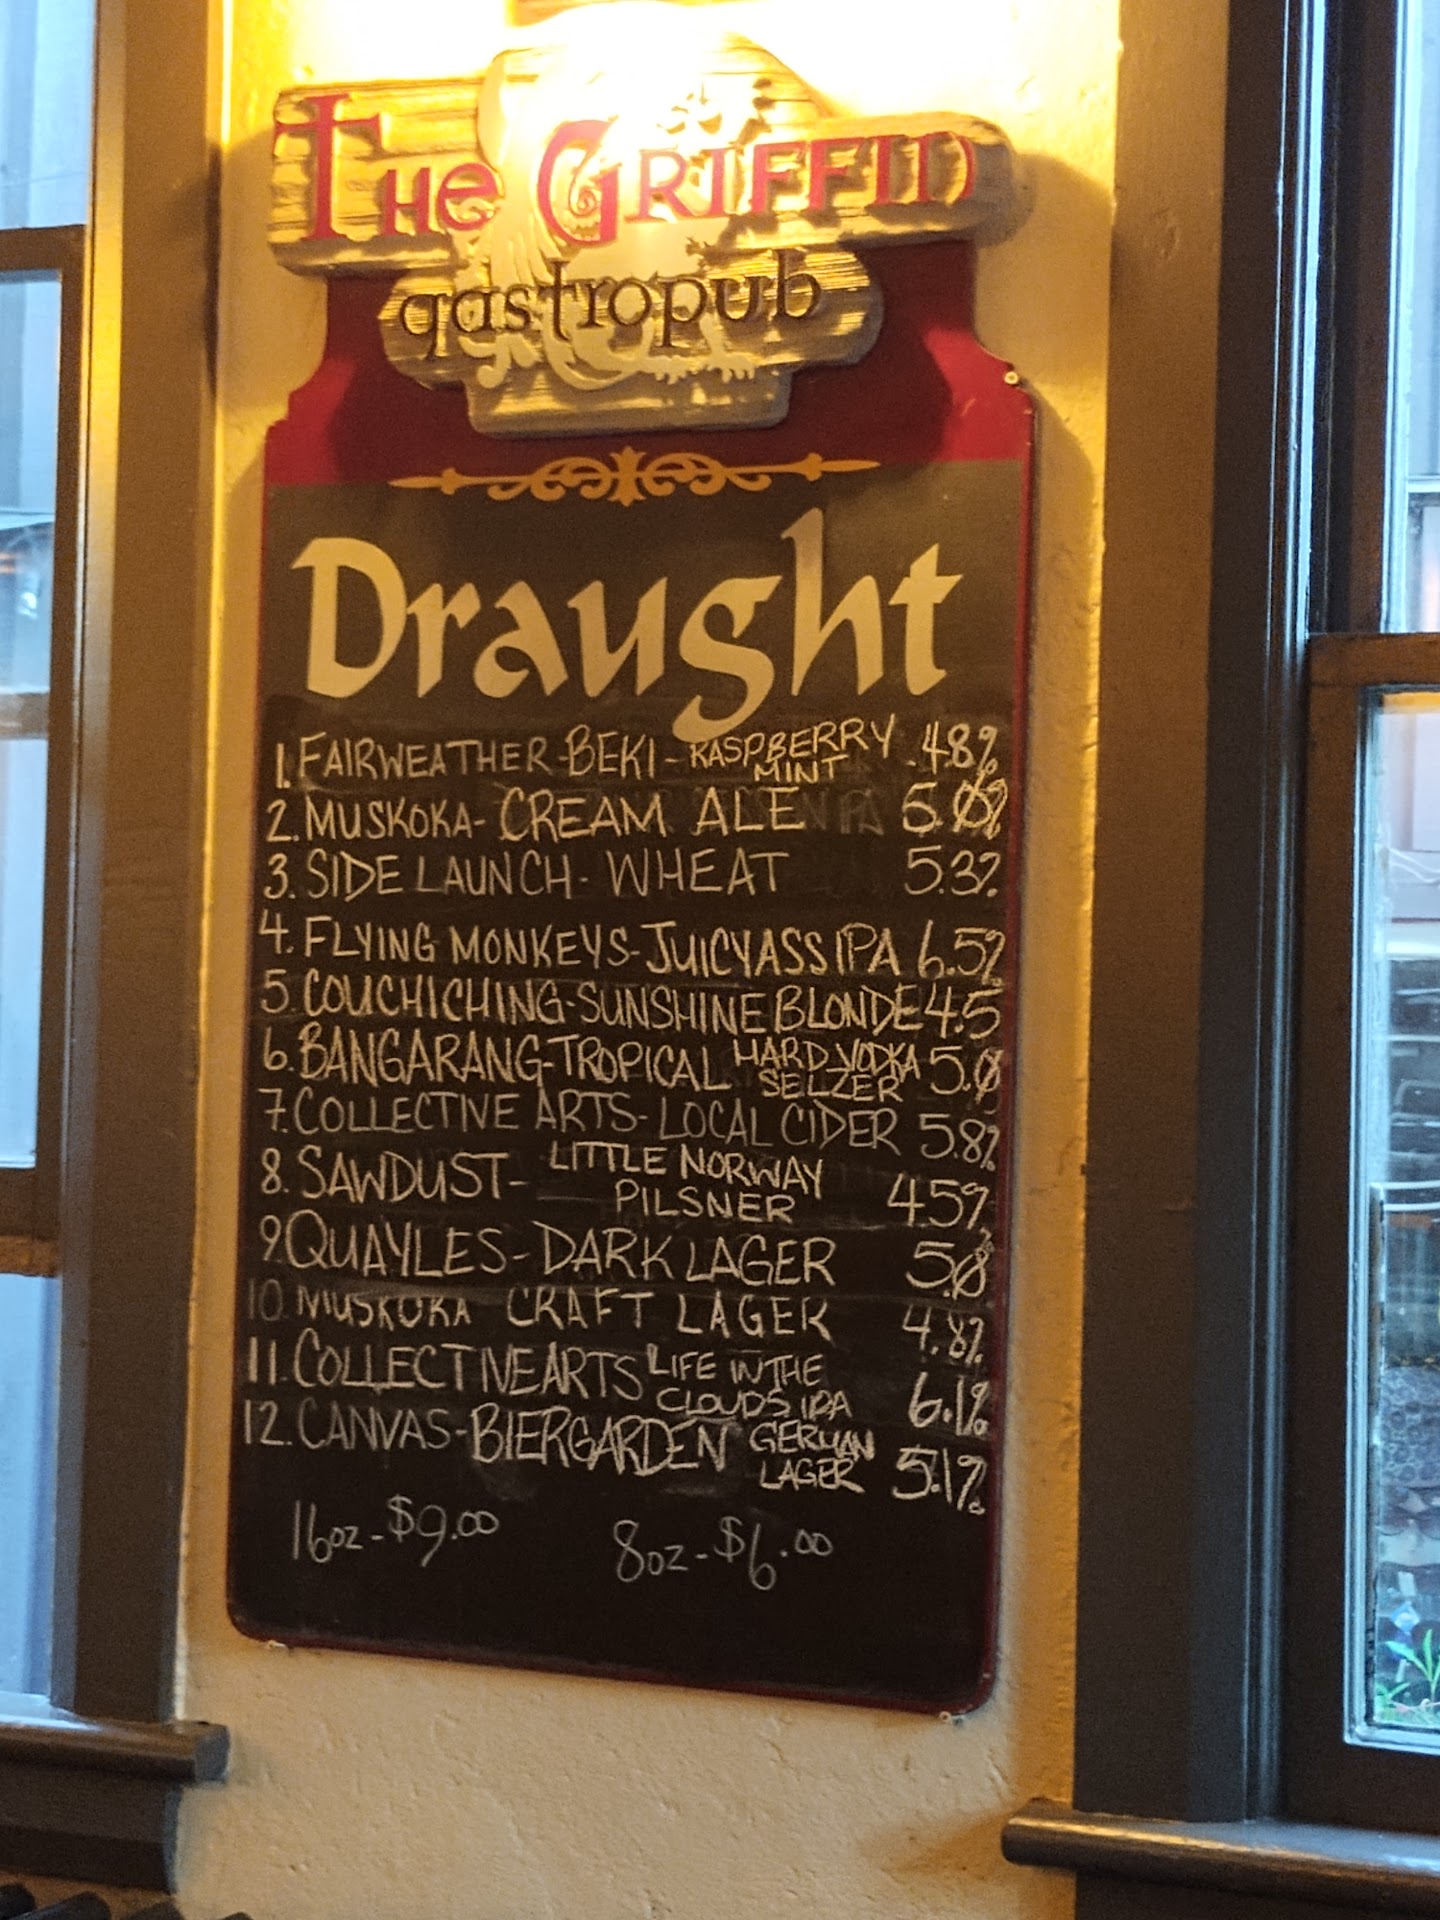 The Griffin
gastropub
Draught
1. FAIRWEATHER-BEKI-RASPBERRY MINT .4.8%
2. MUSKOKA- CREAM ALE 5.0%
3. SIDE LAUNCH- WHEAT 5.3%
4. FLYING MONKEYS-JUICYASS IPA 6.5%
5. COUCHICHING-SUNSHINE BLONDE 4.5
6. BANGARANG-TROPICAL HARD VODKA SELZER 5.0
7. COLLECTIVE ARTS-LOCAL CIDER 5.8%
8. SAWDUST- LITTLE NORWAY PILSNER 4.5%
9. QUAYLES-DARK LAGER 5.0
10. MUSKOKA CRAFT LAGER 4.8%
11. COLLECTIVE ARTS LIFE IN THE CLOUDS IPA 6.1%
12. CANVAS-BIERGARDEN GERMAN LAGER 5.1%
16oz-$9.00 8oz-$6.00